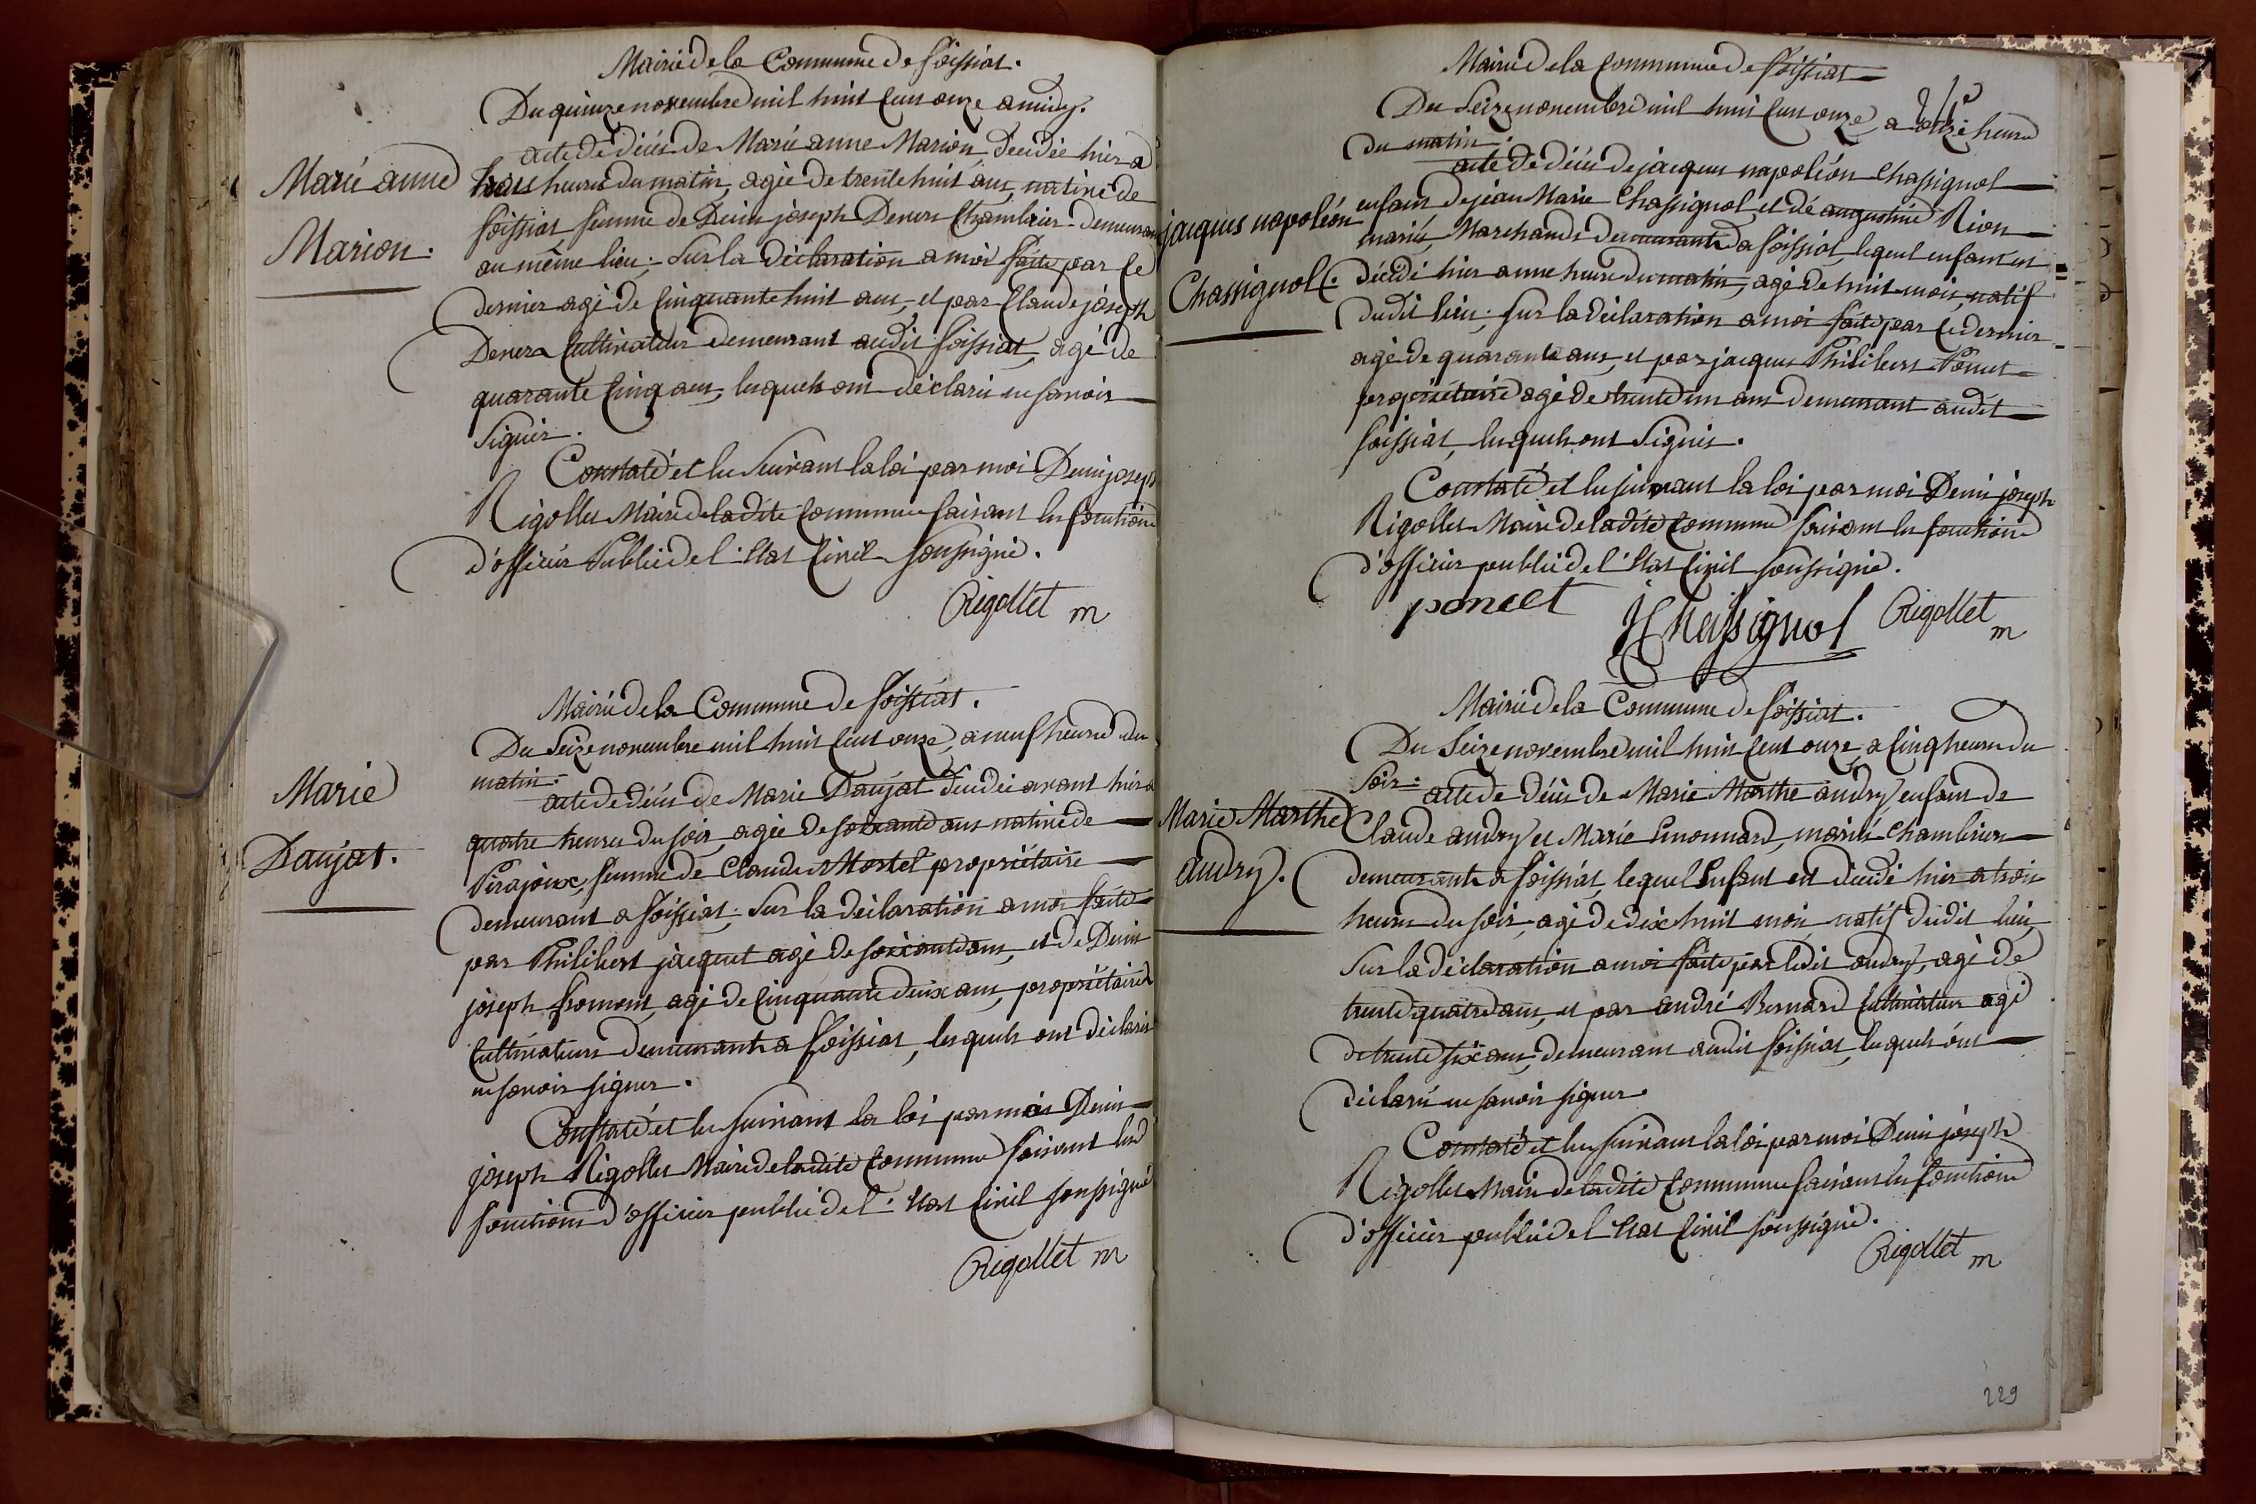 Mairie de la Commune de foissiat.
Du quinze novembre mil huit Cent onze a midy.
acte de décès de Marie anne Marion, Décédée hier a
Marie anne
Marion.
trois heures du matin, agée de trente huit ans, native de
foissiat femme de Denis joseph Chambrier demeurant
au même lieu; Sur la déclaration a moi faite par le
dernier agé de Cinquante huit ans, et par Claude joseph
Cultivateur demeurant audit foissiat, agé de
quarante Cinq ans, lesquels ont déclaré ne savoir
signer.
Constaté et lu Suivant la loi par moi Denis joseph
Rigollet Maire de ladite Commune faisant les fonctions
d'officier Public de l'état Civil soussigné.
Rigollet m
Mairie de la Commune de foissiat.
Du Seize novembre mil huit Cent onze, a neuf heures du
matin.
acte de décès de Marie Daujat décédée avant hier a
Marie
Daujat.
quatre heures du soir, agée de soixante ans native de
Pirajoux, femme de Claude Mortel propriétaire
demeurant a foissiat; Sur la déclaration a moi faite
par Philibert jacquet agé de soixante ans, et de Denis
joseph froment, agé de Cinquante deux ans, propriétaires
Cultivateurs demeurants a foissiat, lesquels ont déclaré
ne savoir signer.
Constaté et lu suivant la loi par moi Denis
joseph Rigollet Maire de ladite Commune faisant les
fonctions d'officier public de l'état Civil soussigné
Rigollet m
Mairie de la Commune de foissiat
Du Seize novembre mil huit Cent onze, a onze heures
du matin.
acte de décès de jacques napoléon Chassignol
jacques napoléon
Chassignol.
enfant de jean Marie Chassignol et de augustine Rion
mariés, Marchands demeurants a foissiat, lequel enfant est
décédé hier a une heure du matin, agé de huit mois, natif
dudit lieu; sur la déclaration a moi faite par le dernier
agé de quarante ans, et par jacques Philibert Poncet
propriétaire agé de trente un ans demeurant audit
foissiat, lesquels ont Signés.
Constaté et lu suivant la loi par moi Denis joseph
Rigollet Maire de ladite Commune faisant les fonctions
d'officier public de l'état Civil soussigné.
poncet Chassignol Rigollet m
Mairie de la Commune de foissiat.
Du Seize novembre mil huit Cent onze, a Cinq heures du
soir.
acte de décès de Marie Marthe audry enfant de
Marie Marthe
audry.
Claude audry et Marie mariés Chambriers
demeurants a foissiat, lequel Enfant est décédé hier a trois
heures du soir, agé de dix huit mois, natif dudit lieu,
Sur la déclaration a moi faite par ledit audry, agé de
trente quatre ans, et par andré Bernard Cultivateur agé
de trente six ans, demeurant audit foissiat, lesquels ont
déclaré ne savoir signer.
Constaté et lu suivant la loi par moi Denis joseph
Rigollet Maire de ladite Commune faisant les fonctions
d'officier public de l'état Civil soussigné.
Rigollet m
229